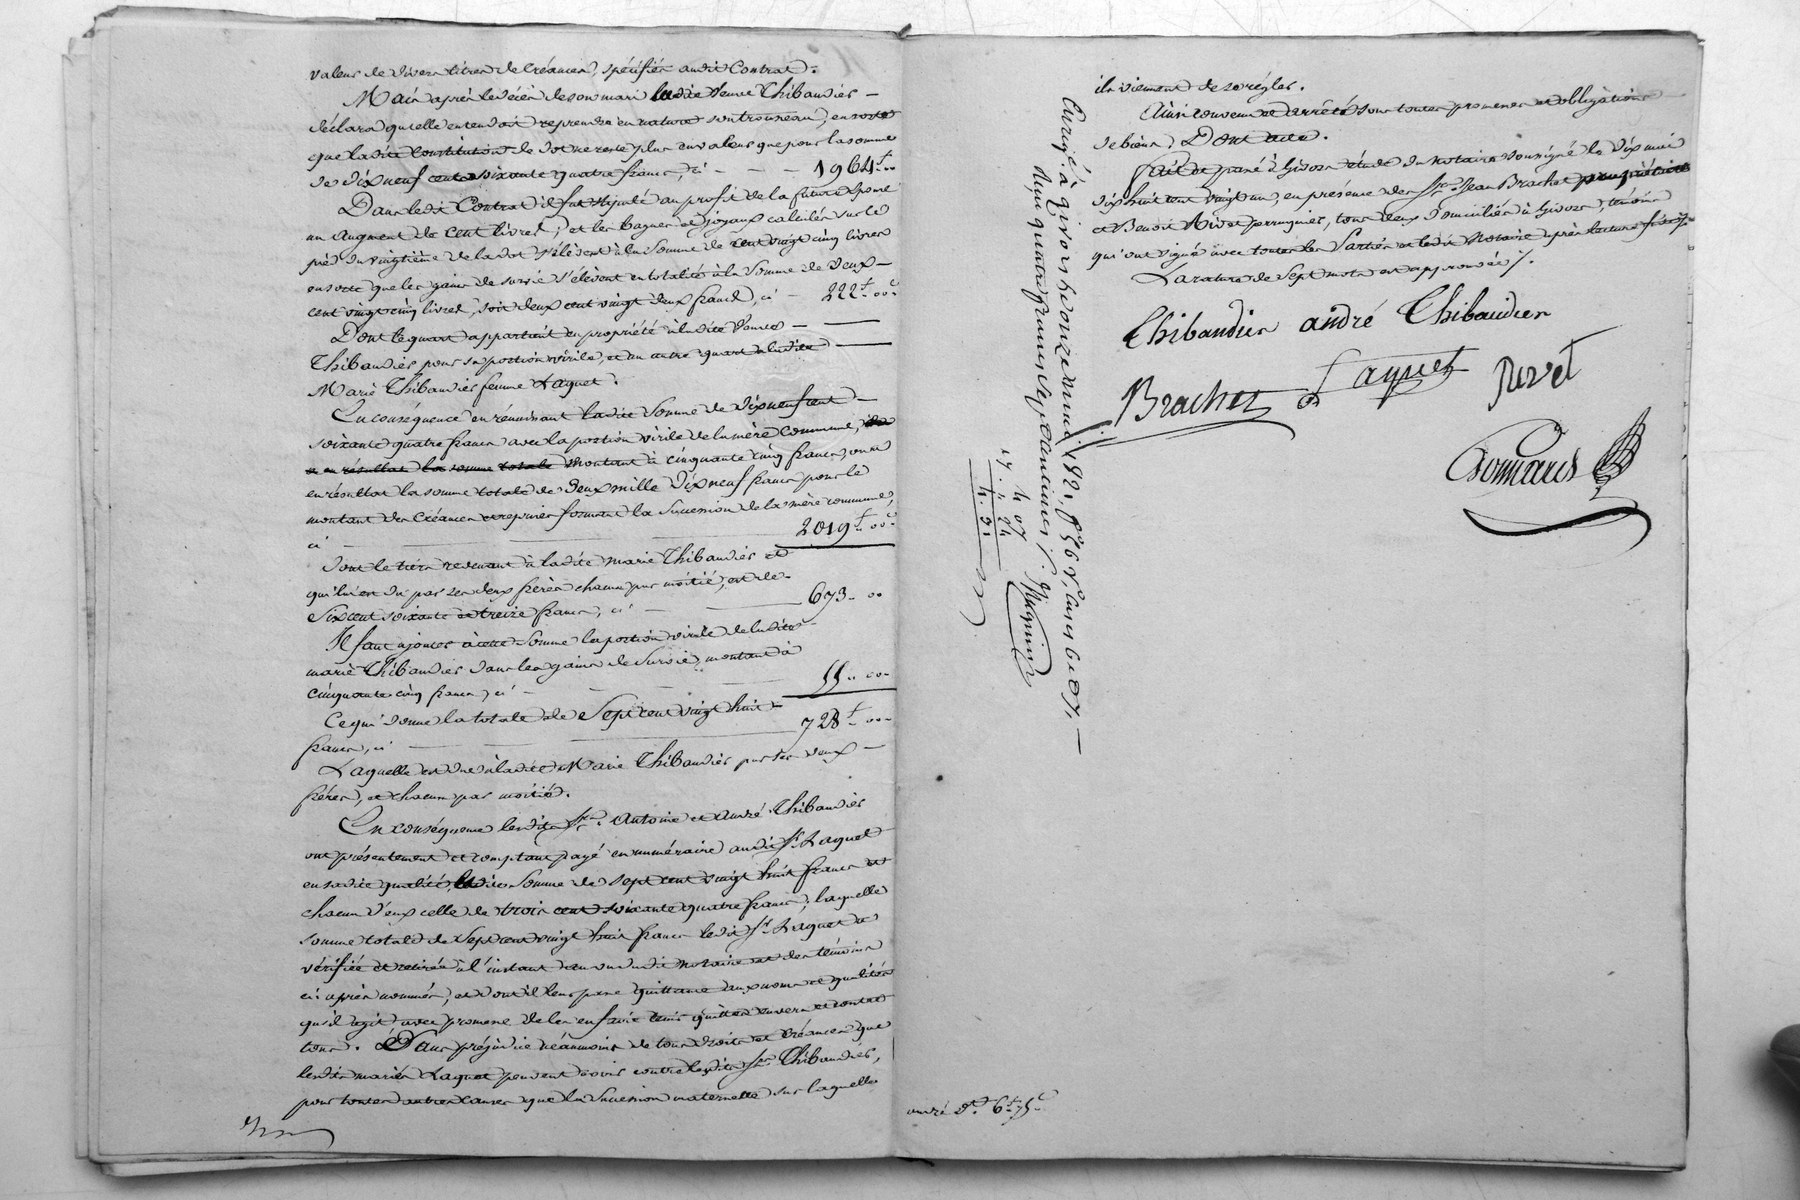 valeur de divers titres de créances, spécifiés audit Contrat.
Mais après le décès de son mari ladite Veuve Thibaudier
déclara qu'elle entendoit reprendre en nature son trousseau, en sorte
que ladite Constitution de dot ne reste plus en valeur que pour la somme
de dixneuf cent soixante quatre francs, ci 1964 f 00
Dans ledit Contrat il fut stipulé au profit de la future épouse
un augment de cent livres; et les bagues et joyaux calculés sur le
pié du vingtième de la dot s'élèvent à la somme de cent vingt cinq livres
ensorte que les gains de survie s'élèvent en totalité à la somme de deux
cent vingt cinq livres, soit deux cent vingt deux francs, ci 222 f 00 c
Dont le quart appartient en propriété à ladite Veuve
Thibaudier pour sa portion virile, et un autre quart à ladite
Marie Thibaudier femme Laquet.
En conséquence en réunissant ladite Somme de dixneuf cent
soixante quatre francs avec la portion virile de la mère commune,
en résultat la somme totale montant à cinquante cinq francs, on a
en résultat la somme totale de deux mille dixneuf francs pour le
montant des Créances et reprises formant la Succession de la mère commune,
ci 2019 f 00 c
Dont le tiers revenant à ladite Marie Thibaudier et
qui lui est dû par ses deux frères chacun par moitié, est de
Six cent soixante et treize francs, ci 673 00
Il faut ajouter à cette Somme la portion virile de ladite
Marie Thibaudier dans les gains de Survie, montant à
cinquante cinq francs, ci 55 00
Ce qui donne la totale de Sept cent vingt huit
francs, ci 728 f 00
Laquelle est due à ladite Marie Thibaudier par ses deux
frères, et chacun par moitié.
En conséquence lesdits Srs. Antoine et André Thibaudier
ont présentement et comptant payé en numéraire audit Sr. Laquet
en sadite qualité, ladite Somme de sept cent vingt huit francs et
chacun d'eux celle de trois cent soixante quatre francs, laquelle
somme totale de Sept cent vingt huit francs ledit Sr. Laquet a
vérifiée et retirée à l'instant au vu dudit notaire et des témoins
ci après nommés, et dont il leur passe quittance aux noms et qualités
qu'il agit avec promesse de les en faire tenir quittes envers et contre
tous. Sans préjudice néanmoins de tous droits et créances que
lesdits mariés Laquet peuvent avoir contre lesdits Srs. Thibaudier,
pour toutes autres causes que la Succession maternelle sur laquelle
ils viennent de se régler.
Ainsi convenu et arrêté sous toutes promesses et obligations
de biens, Dont acte.
Fait et passé à Givors étude du notaire soussigné le dix mai
dix huit cent vingt un, en présence des Srs. Jean Brachet propriétaire
et Benoit Rivet perruquier, tous deux domiciliés à Givors, témoins
qui ont signé avec toutes les Parties et ledit Notaire après lecture faite.
La rature de Sept mots est approuvée.
Thibaudier andré Thibaudier
Brachet Laquet Rivet
Bonnard
Enrgé à Givors le onze mai 1821, f° 56 v°, cases 6 et 7,
Reçu quatre francs sept centimes
4 07
andré d.d. 6 f 75 c